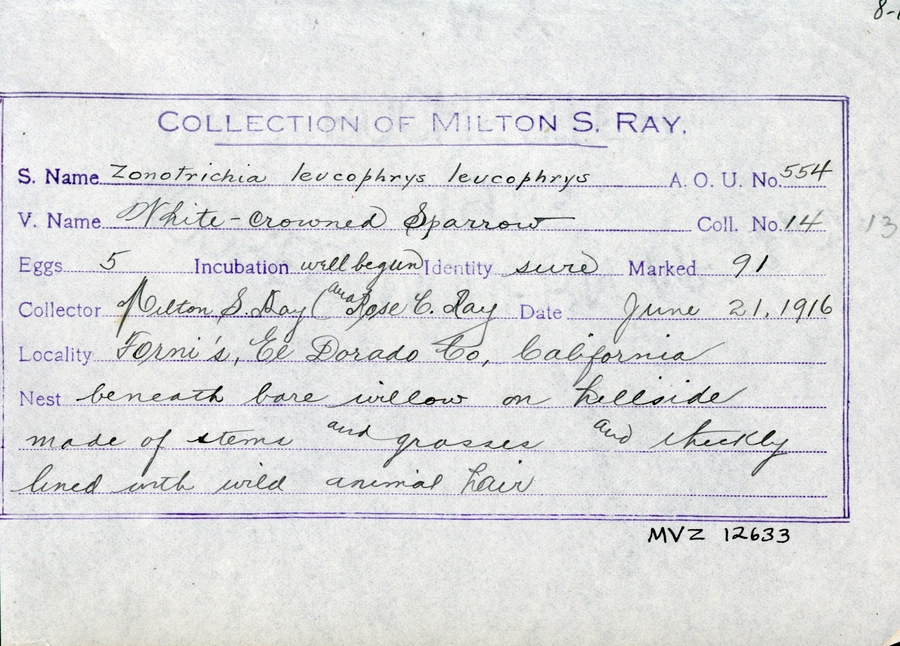 8-
COLLECTION OF MILTON S. RAY.
S. Name Zonotrichia leucophrys leucophrys A. O. U. No. 554
V. Name White-crowned Sparrow Coll. No. 14 13
Eggs 5 Incubation well begun Identity sure Marked 91
Collector Milton S. Ray (and Rose C. Ray Date June 21, 1916
Locality Forni's, El Dorado Co, California
Nest beneath bare willow on hillside
made of stems and grasses and thickly
lined with wild animal hair
MVZ 12633